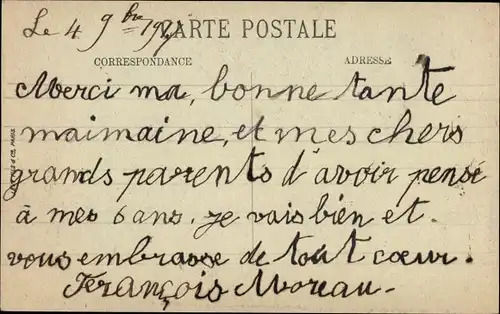 Le 4 9bre
CARTE POSTALE
CORRESPONDANCE
ADRESSE
Merci ma, bonne tante
maimaine, et mes chers
grands parents d'avoir pensé
à mes 6 ans. je vais bien et.
vous embrasse de tout cœur.
François Moreau-